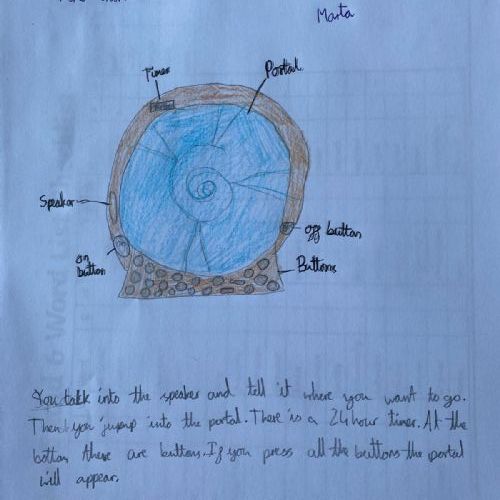 Marta
Timer
Portal
Speaker
on
button
off button
Buttons
You talk into the speaker and tell it where you want to go.
Then you jump into the portal. There is a 24 hour timer. At the
bottom there are buttons. If you press all the buttons the portal
will appear.